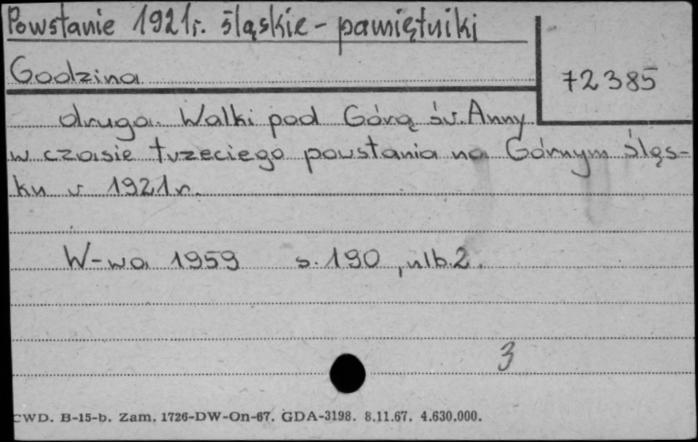 Powstanie 1921r. śląskie - pamiętniki
Godzina
72385
druga. Walki pod Górą św. Anny
w czasie trzeciego powstania na Górnym Śląs-
ku w 1921r.
W-wa 1959 s. 190, nlb. 2.
3
CWD. B-15-b. Zam. 1726-DW-On-67. GDA-3198. 8.11.67. 4.630.000.